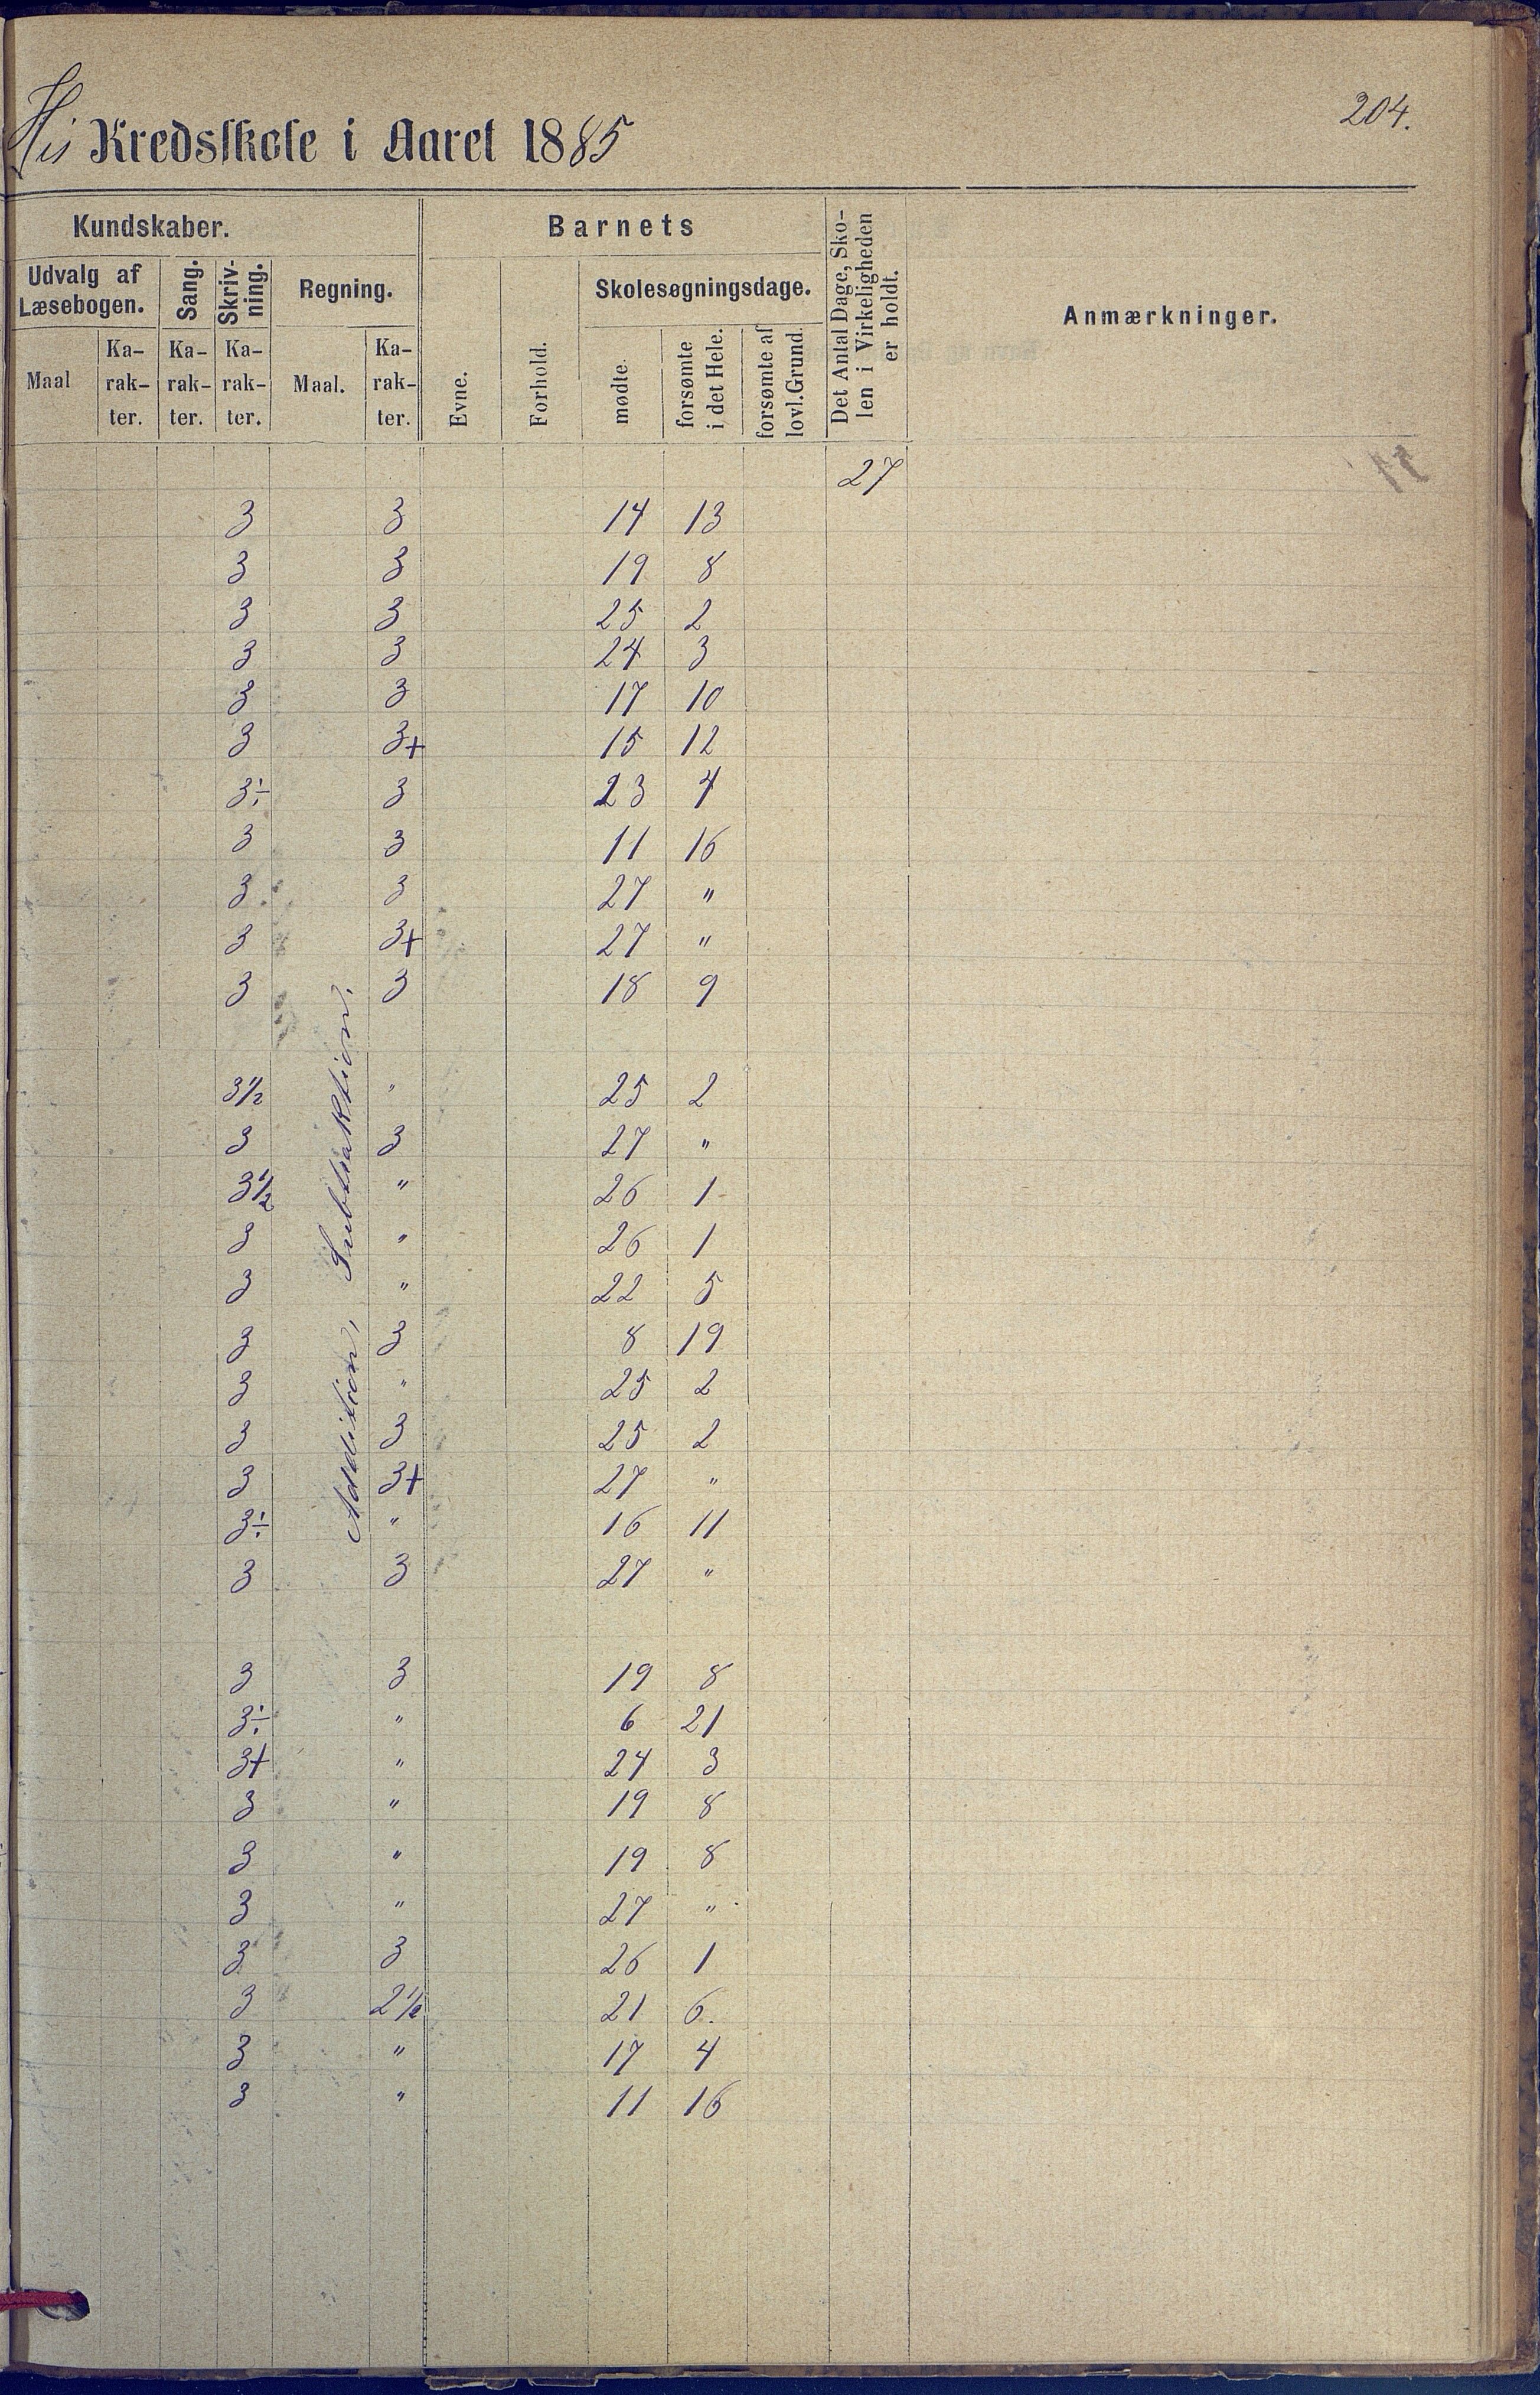 204.
His Kredsskole i Aaret 1885
Kundskaber. Barnets Det Antal Dage, Sko-
len i Virkeligheden
er holdt. Anmærkninger.
Udvalg af
Læsebogen. Sang. Skriv-
ning. Regning. Evne. Forhold. Skolesøgningsdage.
Maal Ka-
rak-
ter. Ka-
rak-
ter. Ka-
rak-
ter. Maal. Ka-
rak-
ter. mødte. forsømte
i det Hele. forsømte af
lovl. Grund.
27
3 3 14 13
3 3 19 8
3 3 25 2
3 3 24 3
3 3 17 10
3 3+ 15 12
3÷ 3 23 4
3 3 11 16
3 3 27 "
3 3+ 27 "
3 3 18 9
Addition, Subtraktion.
3 1/2 " 25 2
3 3 27 "
3 1/2 " 26 1
3 " 26 1
3 " 22 5
3 3 8 19
3 " 25 2
3 3 25 2
3 3+ 27 "
3÷ " 16 11
3 3 27 "
3 3 19 8
3÷ " 6 21
3+ " 24 3
3 " 19 8
3 " 19 8
3 " 27 "
3 3 26 1
3 2 1/2 21 6.
3 " 17 4
3 " 11 16